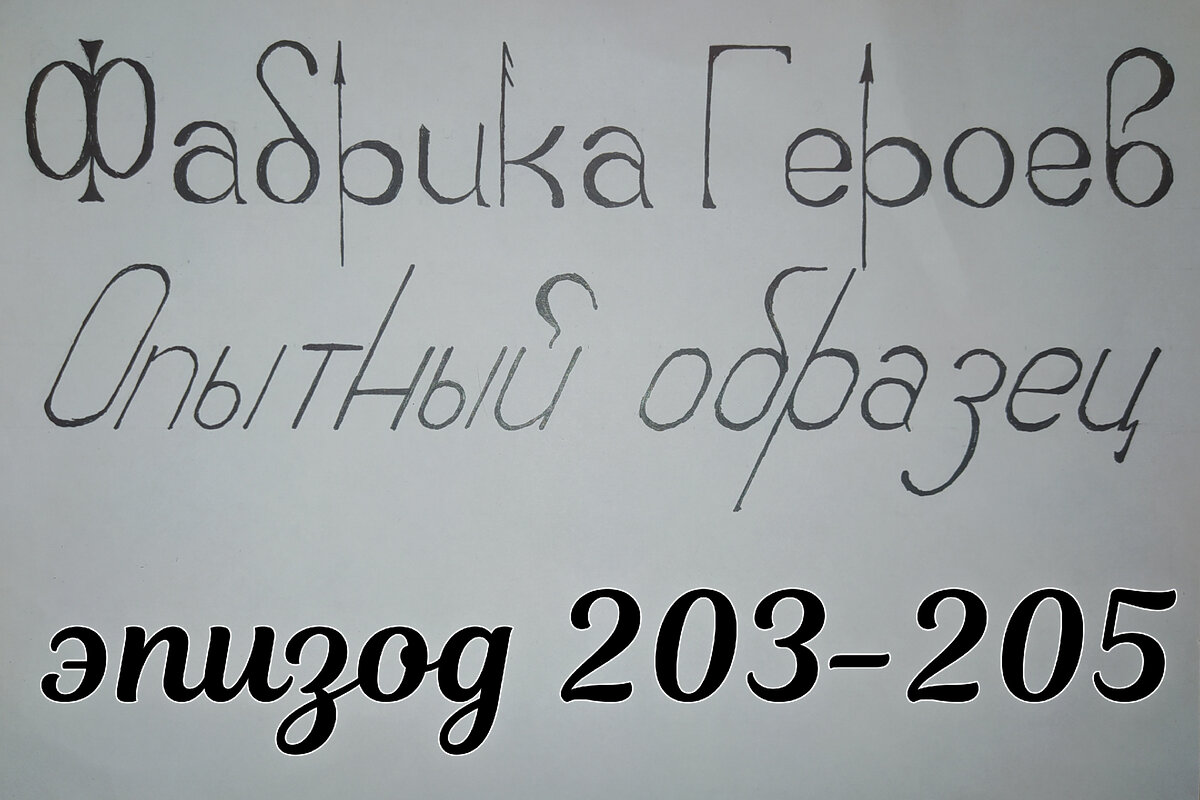 Фабрика Героев
Опытный образец
эпизод 203-205